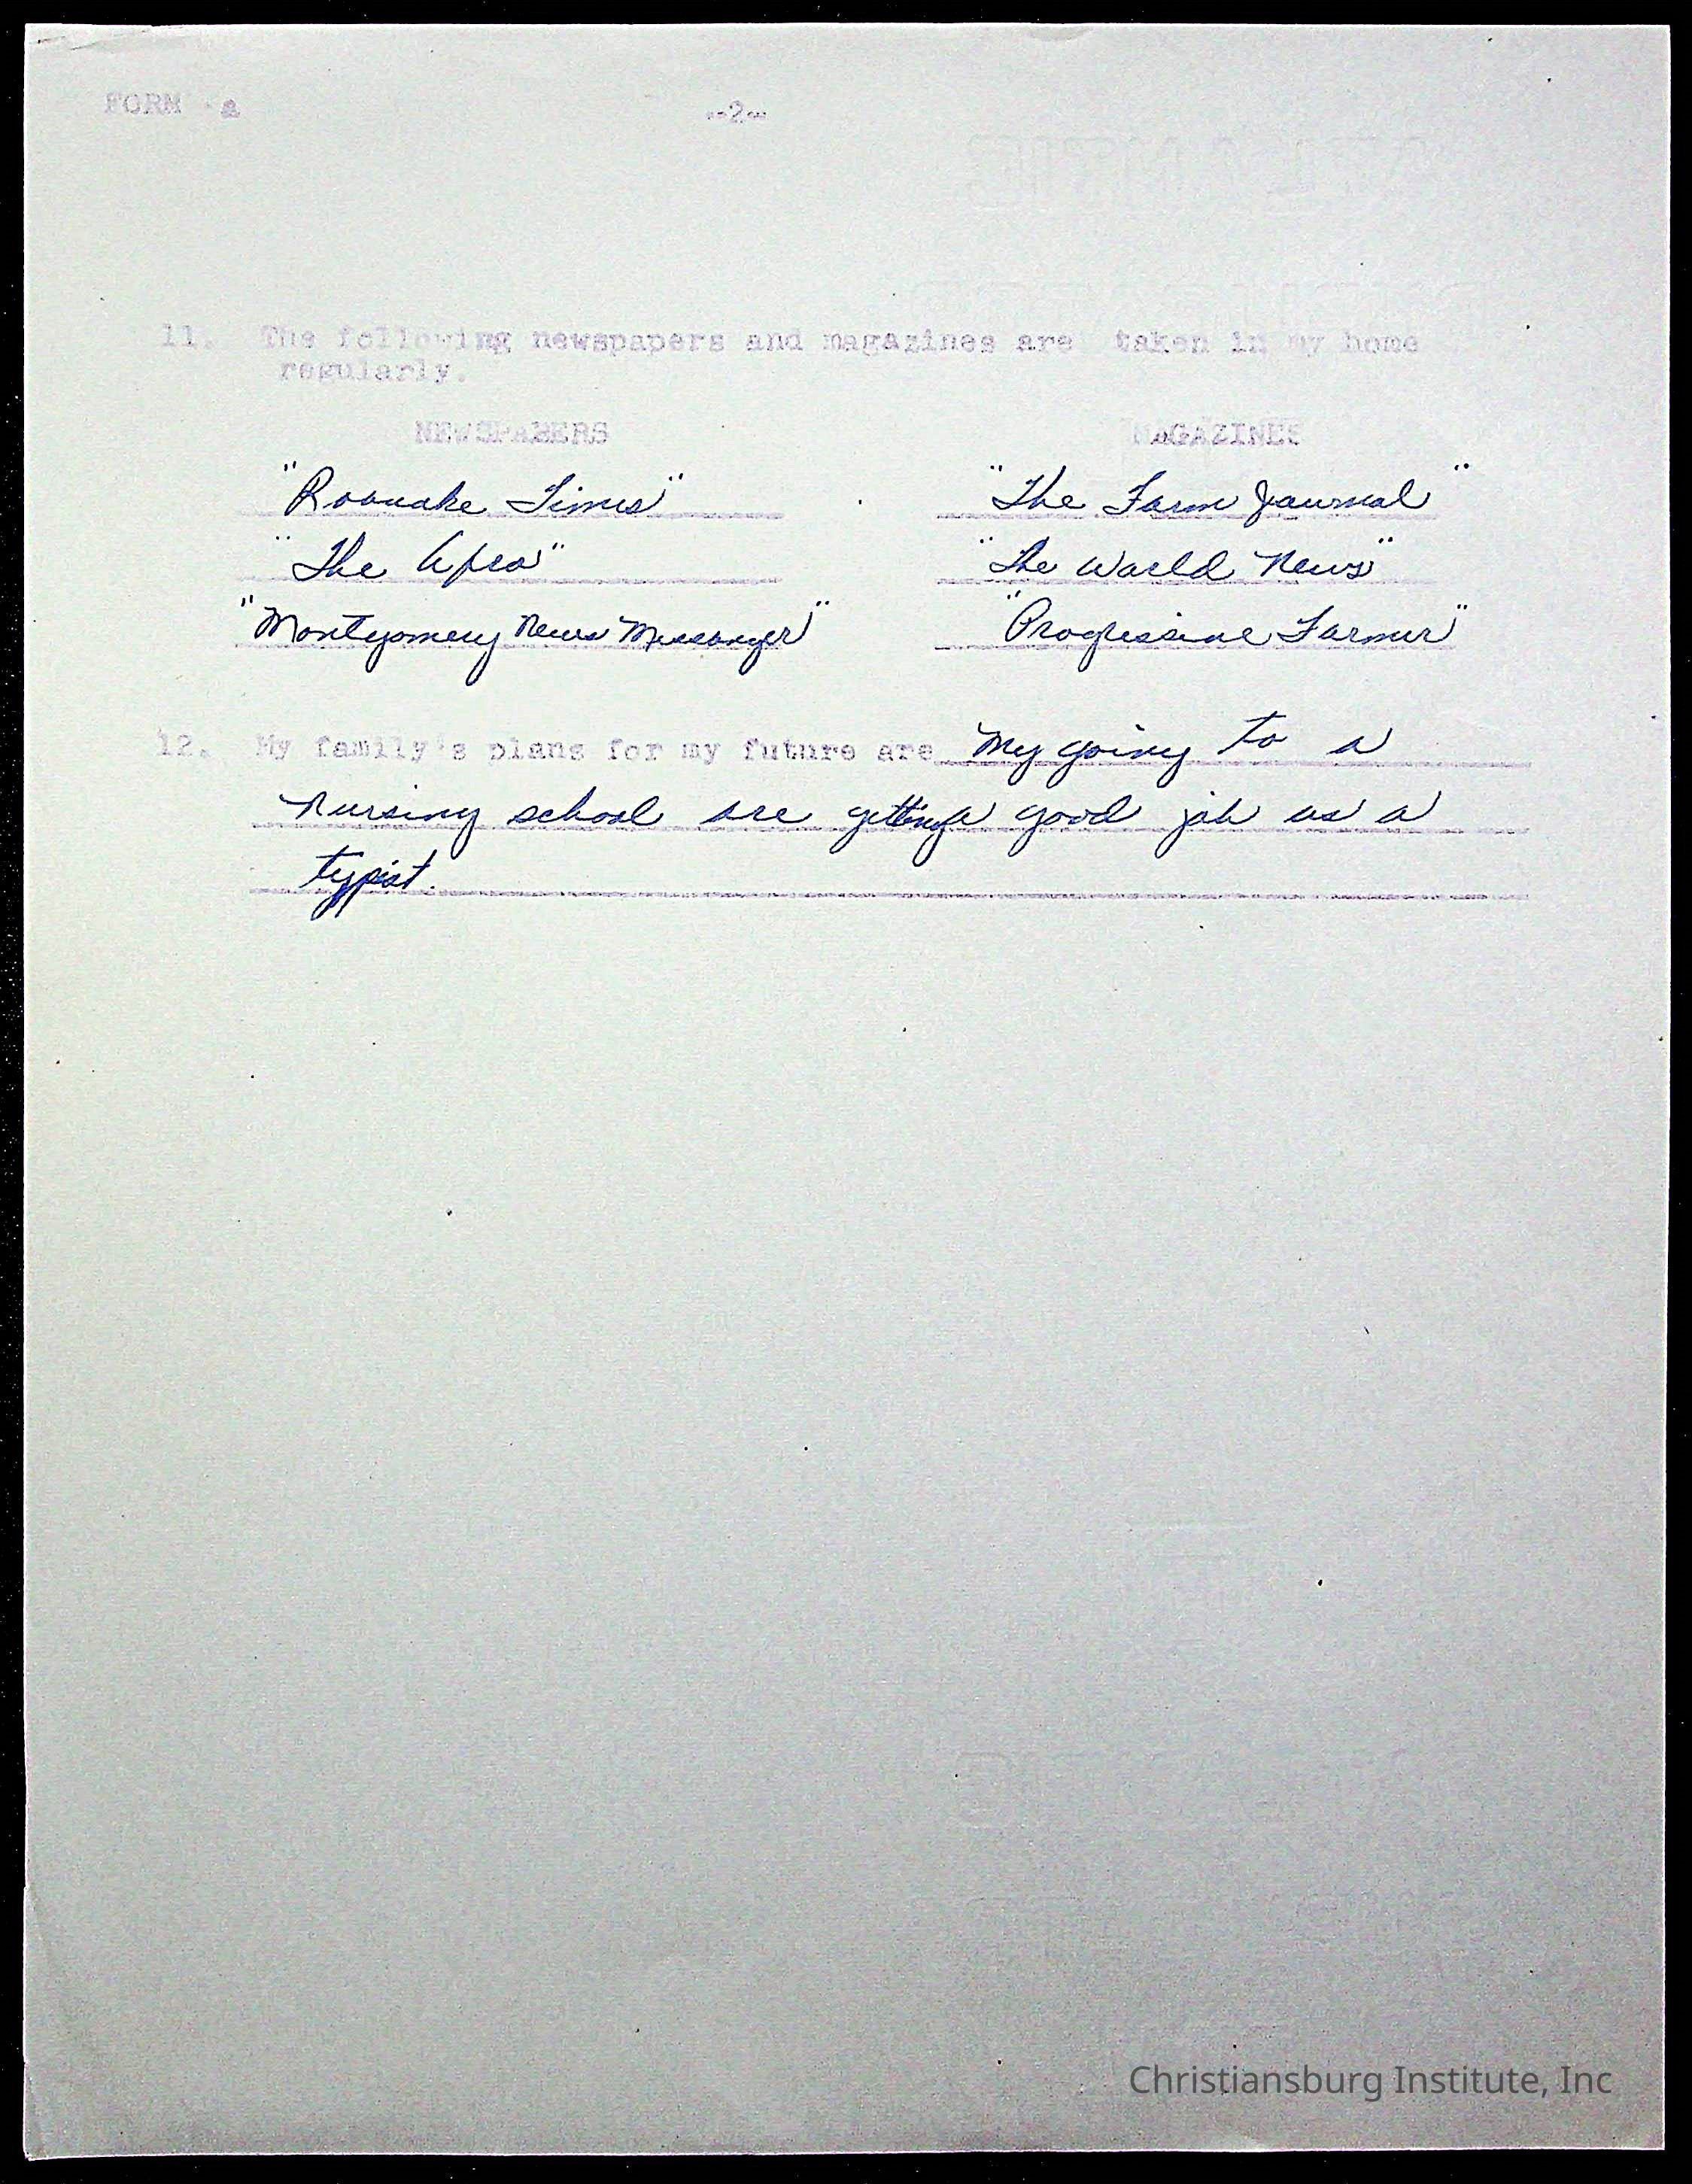 FORM a
--2--
11. The following newspapers and magazines are taken in my home
regularly.
NEWSPAPERS MAGAZINES
"Roanoke Times" "The Farm Journal"
"The Afro" "The World News"
"Montgomery News Messanger" "Progressive Farmer"
12. My family's plans for my future are my going to a
nursing school are getting a good job as a
typist.
Christiansburg Institute, Inc